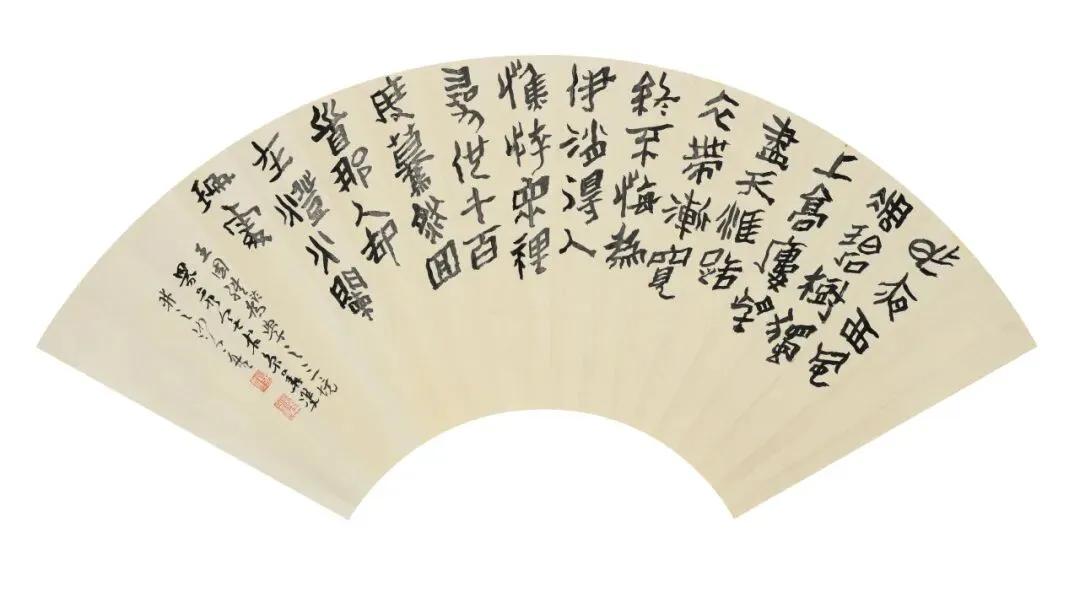 昨夜西風
凋碧樹獨
上高樓望
盡天涯路
衣帶漸寬
終不悔為
伊消得人
憔悴眾裡
尋他千百
度驀然回
首那人卻
在燈火闌
珊處
王國維為學之三境
界